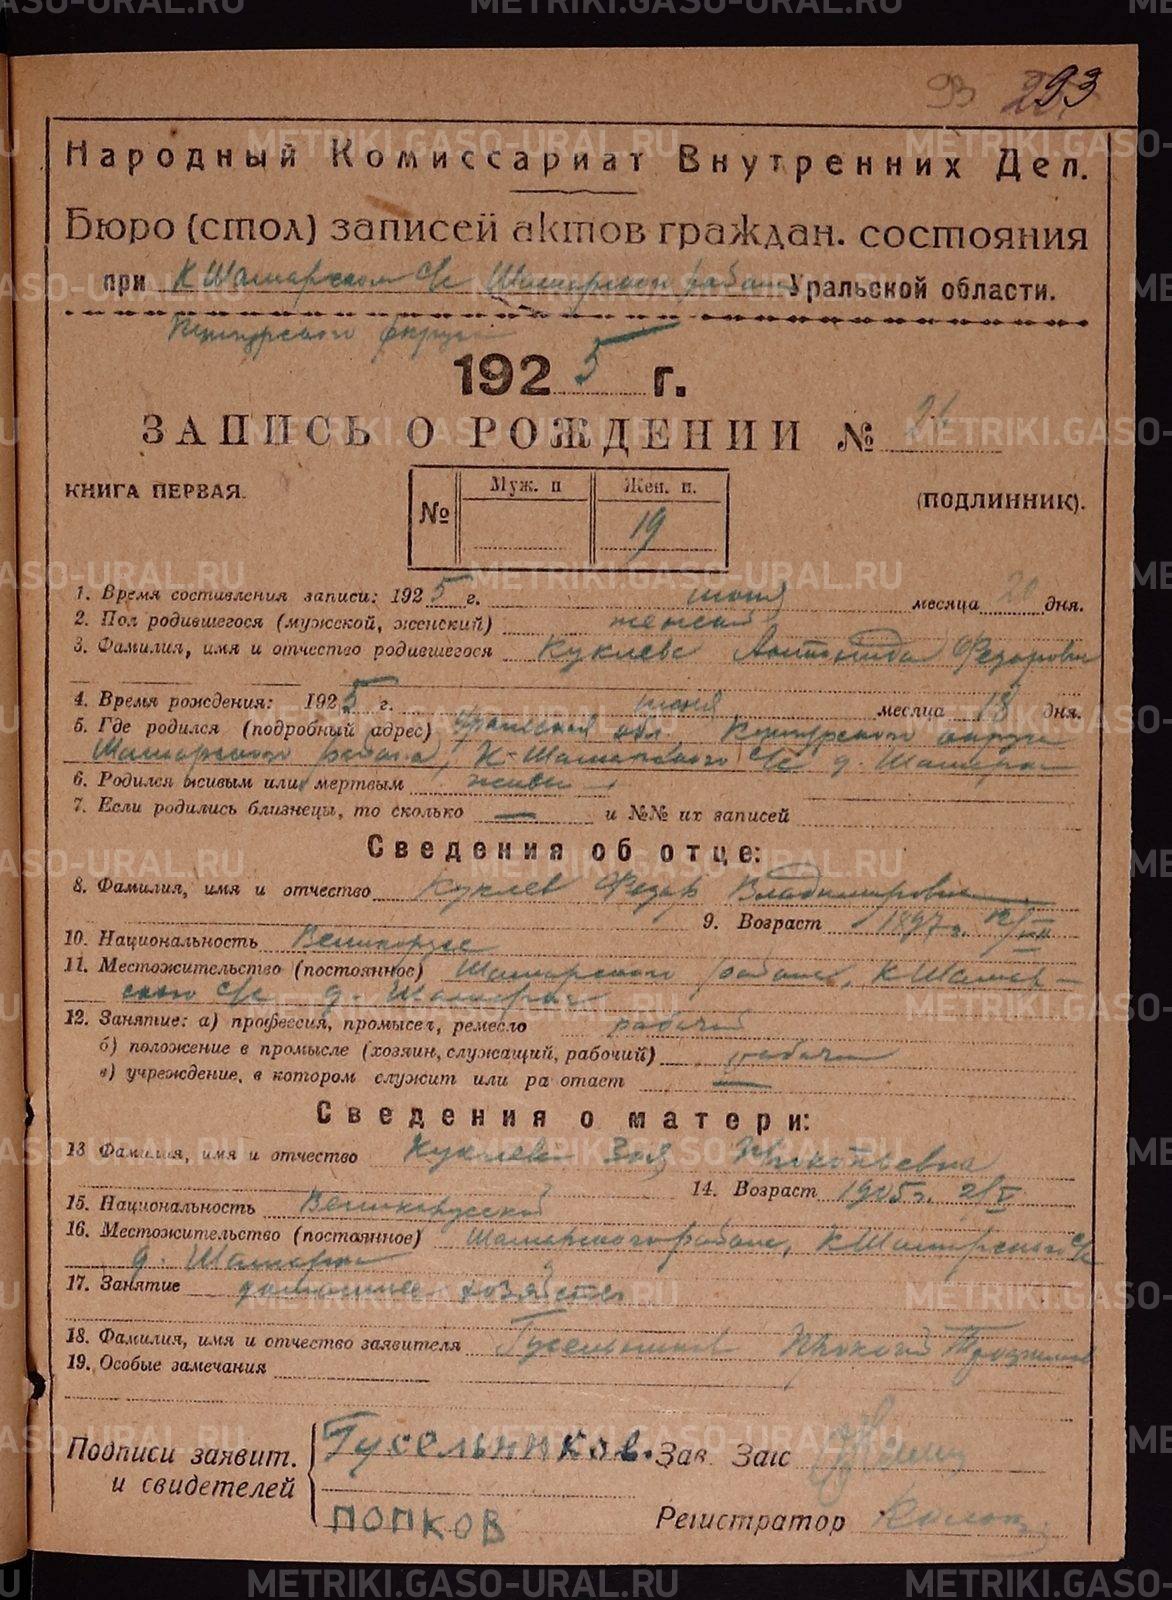 93 293
Народный Комиссариат Внутренних Дел.
Бюро (стол) записей актов граждан. состояния
при К Шамарском с/с Шамарского района Уральской области.
Кунгурского округа
1925 г.
ЗАПИСЬ О РОЖДЕНИИ №
КНИГА ПЕРВАЯ.
№ Муж. п Жен. п.
19
(ПОДЛИННИК).
1. Время составления записи: 1925 г. июня месяца 20 дня.
2. Пол родившегося (мужской, женский) женский
3. Фамилия, имя и отчество родившегося Куклева Федоровн
4. Время рождения: 1925 г. июня месяца 18 дня.
5. Где родился (подробный адрес) Уральская обл. Кунгурского округа
Шамарского района, К-Шамарского с/с д. Шамары
6. Родился живым или мертвым живы
7. Если родились близнецы, то сколько — и №№ их записей
Сведения об отце:
8. Фамилия, имя и отчество Куклев Федор Владимирович
9. Возраст 1897 г.
10. Национальность Великорусс
11. Местожительство (постоянное) Шамарского района, К Шамар-
ского с/с д. Шамары
12. Занятие: а) профессия, промысел, ремесло рабочий
б) положение в промысле (хозяин, служащий, рабочий) рабочий
в) учреждение, в котором служит или ра отает —
Сведения о матери:
13 Фамилия, имя и отчество Куклева Зоя Прокопьевна
14. Возраст 1905 г. 2/V
15. Национальность Великорусской
16. Местожительство (постоянное) Шамарского района, К Шамарского с/с
д. Шамары
17. Занятие домашнее хозяйство
18. Фамилия, имя и отчество заявителя Гусельников Прокопий
19. Особые замечания
Подписи заявит.
и свидетелей
Гусельников.
ПОПКОВ
Зав. Загс
Регистратор
METRIKI.GASO-URAL.RU